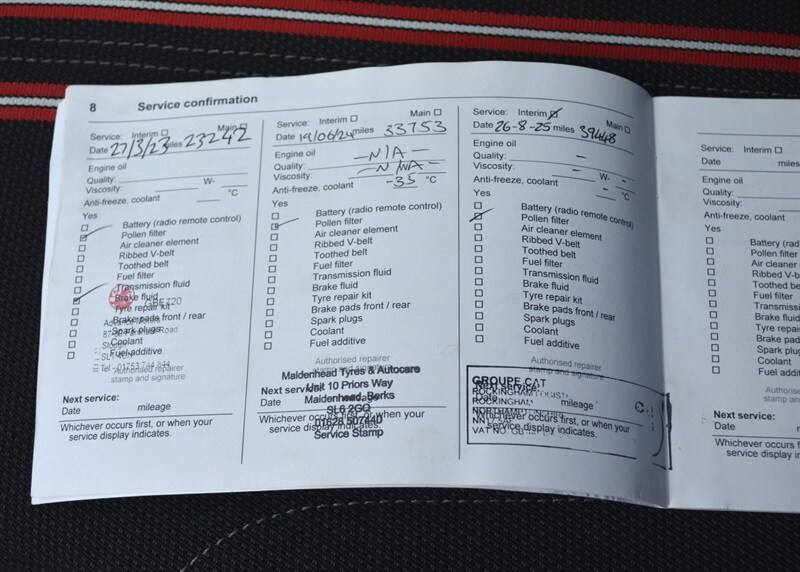 8 Service confirmation
Service: Interim Main
Date 27/3/23 miles 23242
Engine oil
Quality:
Viscosity: W-
Anti-freeze, coolant °C
Yes
Battery (radio remote control)
Pollen filter
Air cleaner element
Ribbed V-belt
Toothed belt
Fuel filter
Transmission fluid
Brake fluid
Tyre repair kit
Brake pads front / rear
Spark plugs
Coolant
Fuel additive
Authorised repairer
stamp and signature
Next service:
Date mileage
Whichever occurs first, or when your
service display indicates.
Service: Interim Main
Date 19/06/24 miles 33753
Engine oil
Quality: N/A
Viscosity: N/WA
Anti-freeze, coolant -35 °C
Yes
Battery (radio remote control)
Pollen filter
Air cleaner element
Ribbed V-belt
Toothed belt
Fuel filter
Transmission fluid
Brake fluid
Tyre repair kit
Brake pads front / rear
Spark plugs
Coolant
Fuel additive
Authorised repairer
stamp and signature
Maidenhead Tyres & Autocare
Unit 10 Priors Way
Maidenhead, Berks
SL6 2GQ
01628 507440
Service Stamp
Next service:
Date mileage
Whichever occurs first, or when your
service display indicates.
Service: Interim Main
Date 26-8-25 miles 39448
Engine oil
Quality: -
Viscosity: - W- -
Anti-freeze, coolant - °C
Yes
Battery (radio remote control)
Pollen filter
Air cleaner element
Ribbed V-belt
Toothed belt
Fuel filter
Transmission fluid
Brake fluid
Tyre repair kit
Brake pads front / rear
Spark plugs
Coolant
Fuel additive
Authorised repairer
stamp and signature
GROUPE CAT
ROCKINGHAM
ROCKINGHAM
VAT NO GB
Next service:
Date mileage
Whichever occurs first, or when your
service display indicates.
Service: Interim
Date miles
Engine oil
Quality:
Viscosity:
Anti-freeze, coolant
Yes
Battery (radio
Pollen filter
Air cleaner
Ribbed V-belt
Toothed belt
Fuel filter
Transmission
Brake fluid
Tyre repair
Brake pads
Spark plugs
Coolant
Fuel additive
Authorised
stamp and
Next service:
Date
Whichever occurs
service display